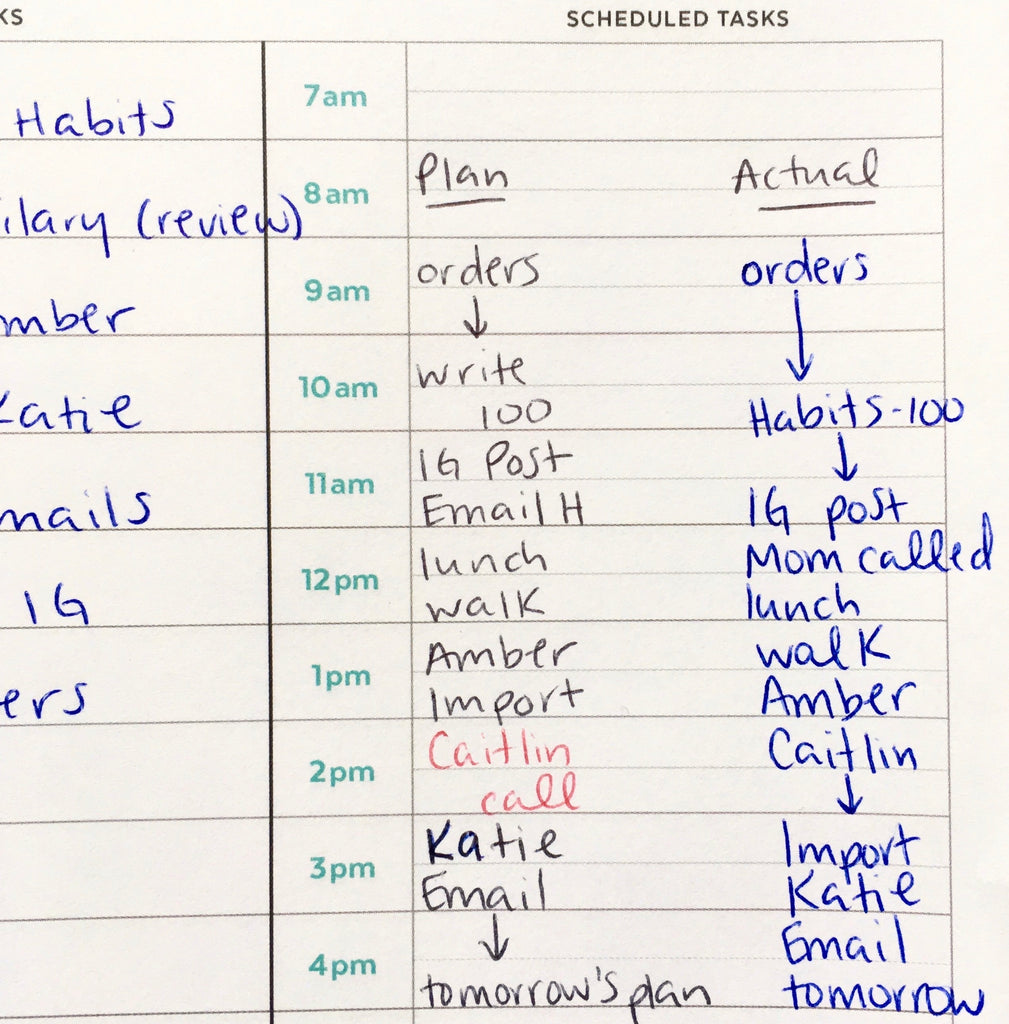 SCHEDULED TASKS
Habits
7am
Plan Actual
8am
(review)
orders orders
9am
write
10am
100 Habits-100
Katie
IG Post
11am
Email H IG post
lunch Mom called
12pm
walk lunch
IG
Amber walk
1pm
Import Amber
Caitlin Caitlin
2pm
call
Katie Import
3pm
Email Katie
Email
4pm
tomorrow's plan tomorrow